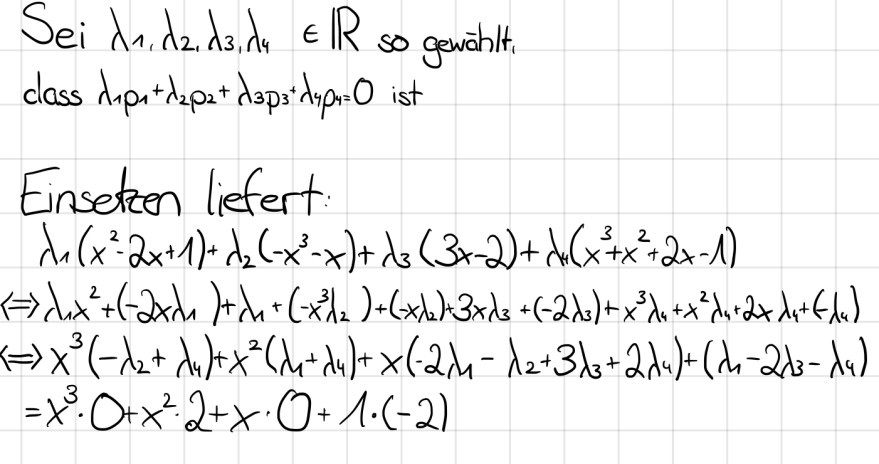 Sei λ₁, λ₂, λ₃, λ₄ ∈ ℝ so gewählt,
dass λ₁p₁+λ₂p₂+λ₃p₃+λ₄p₄=0 ist
Einsetzen liefert:
λ₁(x²-2x+1)+λ₂(-x³-x)+λ₃(3x-2)+λ₄(x³+x²+2x-1)
⇔λ₁x²+(-2xλ₁)+λ₁+(-x³λ₂)+(-xλ₂)+3xλ₃+(-2λ₃)+x³λ₄+x²λ₄+2xλ₄+(-λ₄)
⇔x³(-λ₂+λ₄)+x²(λ₁+λ₄)+x(-2λ₁-λ₂+3λ₃+2λ₄)+(λ₁-2λ₃-λ₄)
=x³·0+x²·2+x·0+1·(-2)